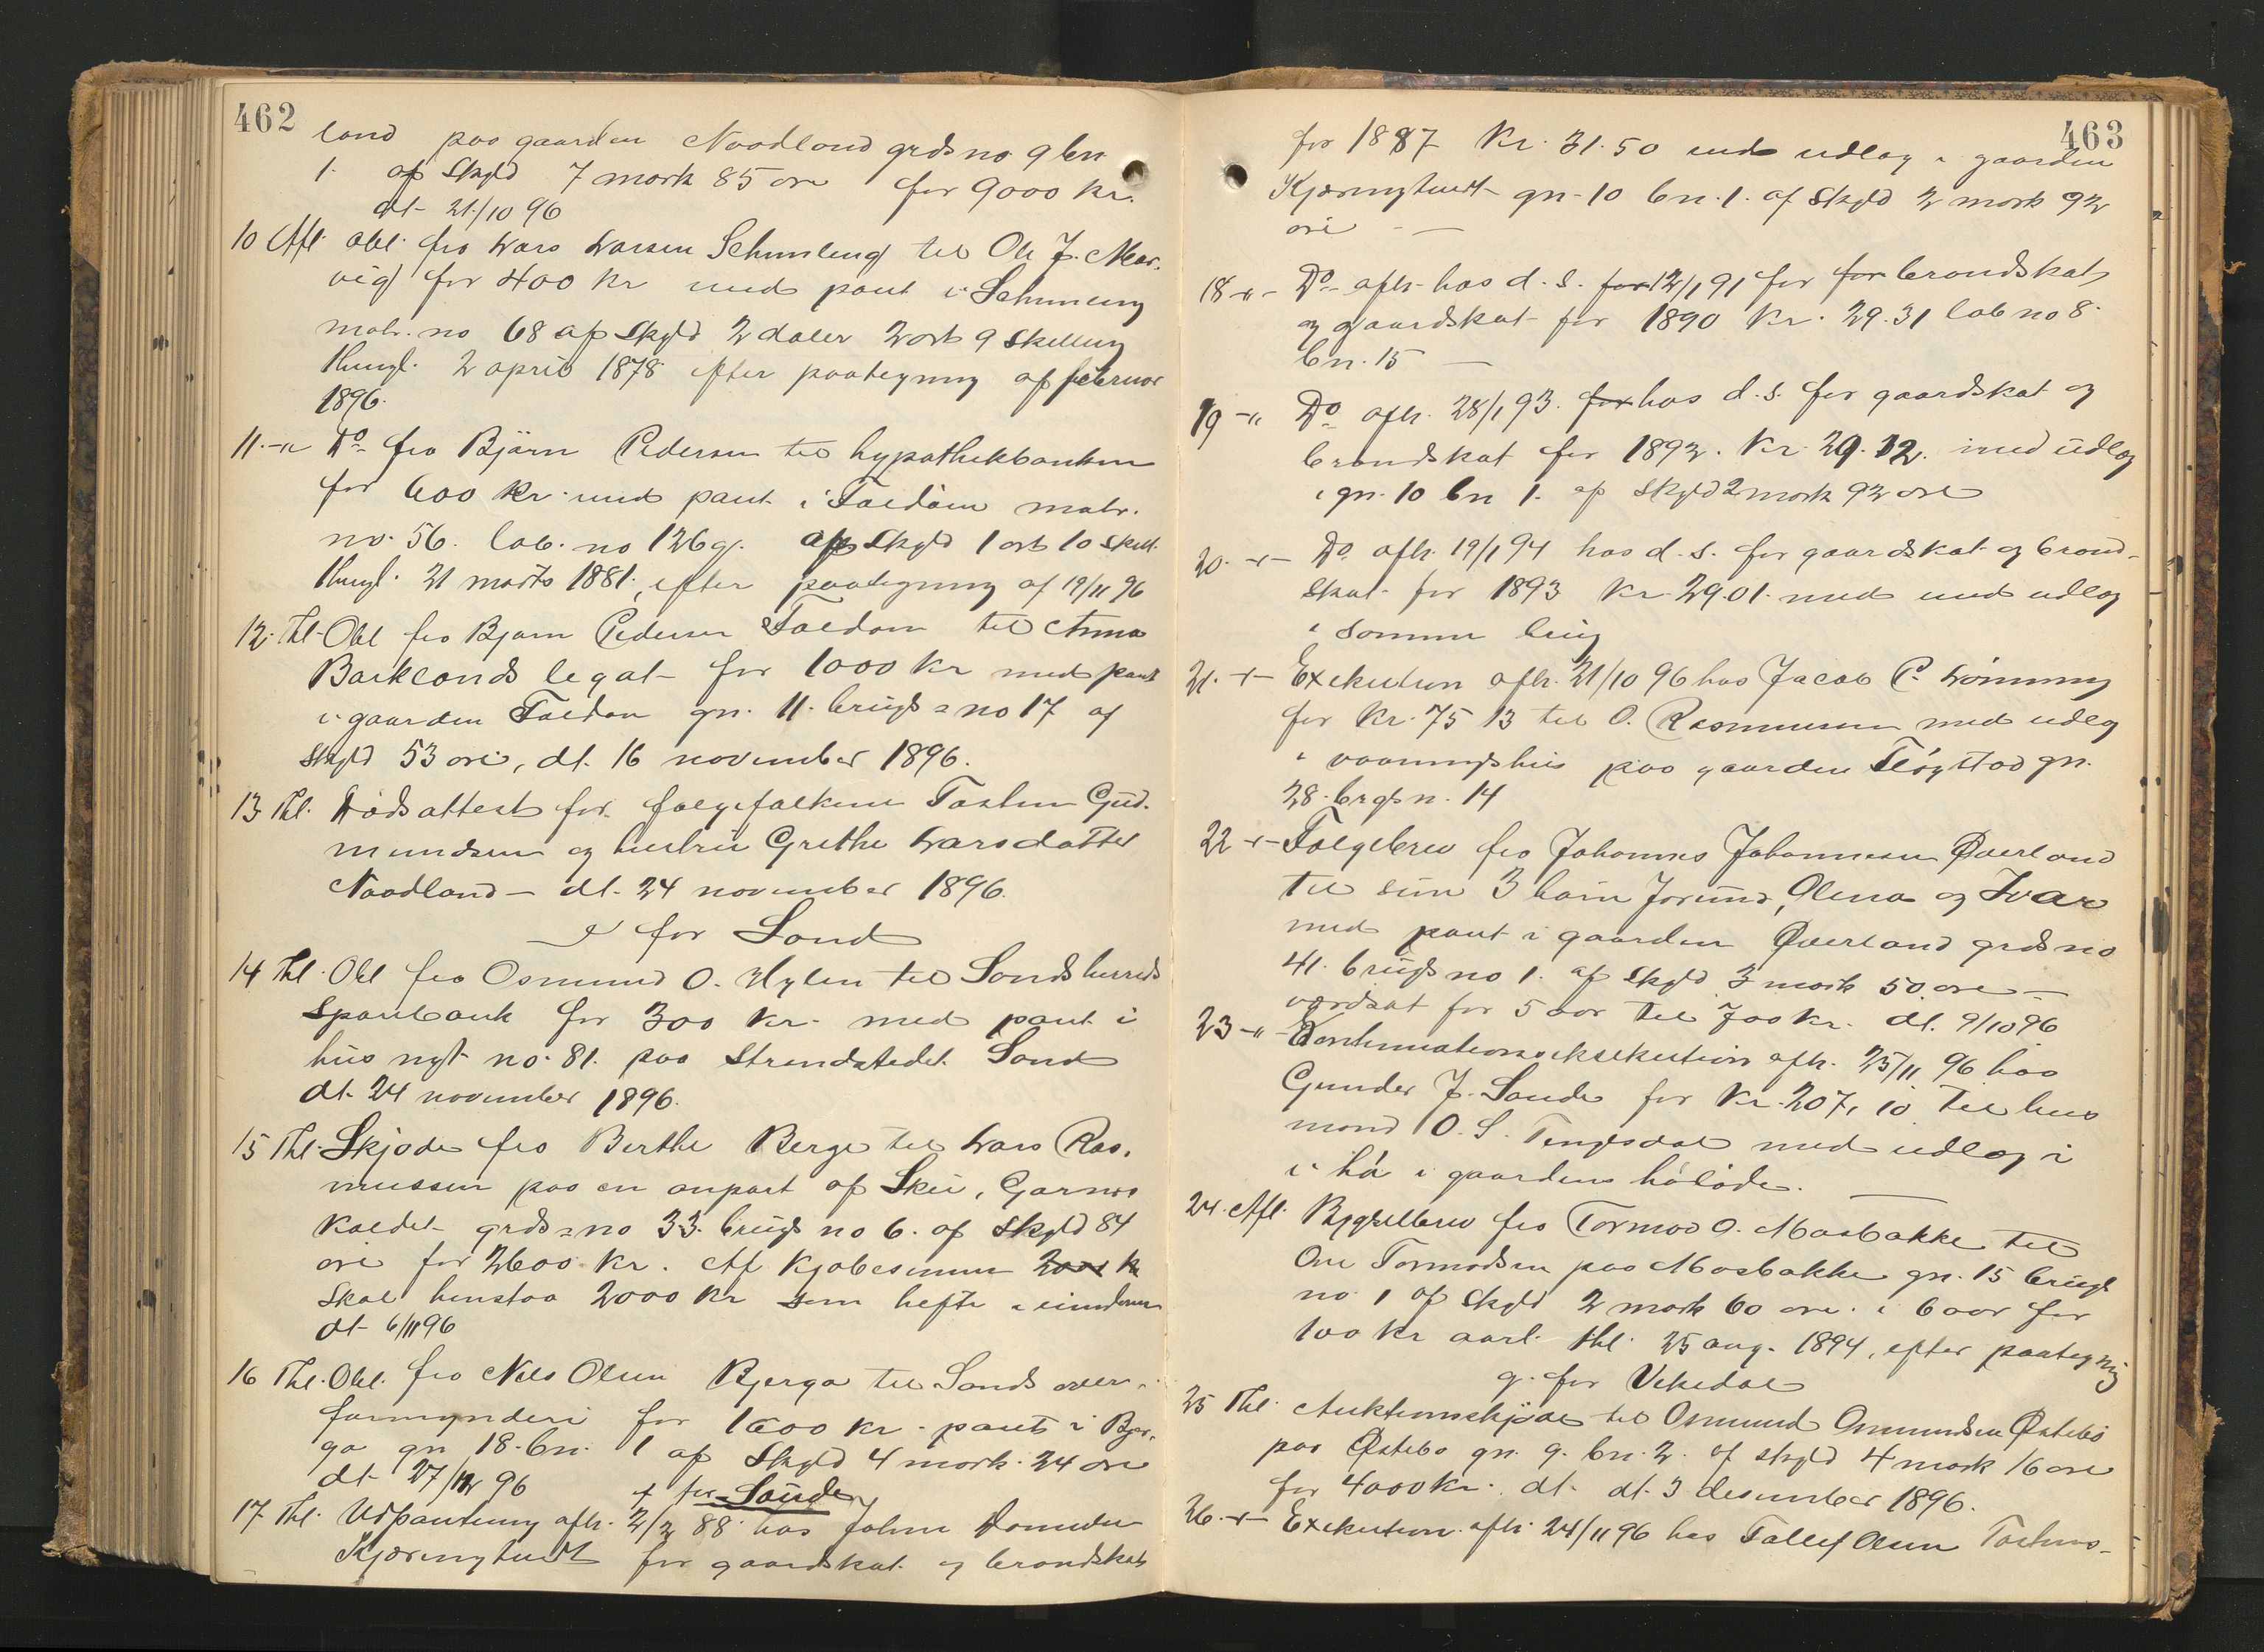 462
land paa gaarden Naadland grds no 9 bn
1. af Skyld 7 mark 85 øre for 9000 kr.
dt. 21/10 96
10 Afl. obl. fra Lars Larsen til Ole J. Mar-
vig for 400 kr med pant i
matr. no 68 af Skyld 2 daler 2 ort 9 skilling
thingl. 2 april 1878 efter paategning af februar
1896.
11. -"- Do fra Bjørn Pedersen til hypothekbanken
for 600 kr. med pant i Faldøen matr.
no. 56. løb. no 126 g. af Skyld 1 ort 10 skill.
thingl. 21 marts 1881, efter paategning af 19/11 96
12. Thl. Obl fra Bjørn Pedersen Faldøen til Anna
Barklands legat for 1000 kr med pant
i gaarden Faldøen gn. 11. brugs no 17 af
Skyld 53 øre, dt. 16 november 1896.
13. Thl. Dødsattest for folgefolkene Tosten Gud-
mundsen og hustru Grethe Larsdatter
Naadland – dt. 24 november 1896.
e for Sand
14 Thl. Obl fra Osmund O. Hylen til Sands herreds
Sparebank for 300 kr. med pant i
hus nyt no. 81. paa Strandstedet Sand
dt. 24 november 1896.
15 Thl. Skjøde fra Berthe Berge til Lars Ras-
mussen paa en anpart af
kaldet grds no 33. brugs no 6. af Skyld 84
øre for 2600 kr. Af Kjøbesummen 2000 kr
skal henstaa 2000 kr som hefte i eiendommen
dt 6/11 96
16 Thl. Obl. fra Nils Olsen Bjerga til Sands over-
formynderi for 1600 kr. pant i Bjer-
ga gn 18. bn. 1 af Skyld 4 mark. 24 øre
dt 27/11 96
f for Saude
17. Thl. Udpantning afh. 2/2 88 hos John
for gaardskat og brandskat
463
for 1887 Kr. 31.50 med udlæg i gaarden
gn. 10 bn. 1. af Skyld 2 mark 92
øre – –
18 -"- Do afh. hos d. s. for 12/1 91 for for brandskat
og gaardskat for 1890 Kr. 29.31 løb no 8.
bn. 15 –
19 -"- Do afh. 28/1 93. for hos d. s. for gaardskat og
brandskat for 1892. Kr. 29.12. med udlæg
i gn. 10 bn 1. af Skyld 2 mark 92 øre
20. -"- Do afh. 19/1 94 hos d. s. for gaardskat og brand-
skat for 1893 Kr. 29.01. med med udlæg
i samme brug
21. -"- Exekution afh. 21/10 96 hos Jacob P. Lønning
for Kr. 75 13 til O. Rasmussen med udlæg
i vaaningshus paa gaarden Fløgstad gn.
28. brgs n. 14
22 -"- Folgebrev fra Johannes Johannesen Øverland
til sine 3 børn Jorund, Olena og Ivar
med pant i gaarden Øverland grds no
41. brugs no 1. af Skyld 3 mark 50 øre –
værdsat for 5 aar til 700 kr. dt. 9/10 96
23 -"- Kontinuationseksekution afh. 25/11 96 hos
Gunder J. Sande for Kr. 207,10 til hus
mand O. S. Tengesdal med udlæg i
i hø i gaardens høløde. –
24. Afl. Bygselbrev fra Tormod O. Mosbakke til
Ole Tormodsen paa Mosbakke gn. 15 brugs
no 1 af Skyld 2 mark 60 øre. i 6 aar for
100 kr aarl. thl. 25 aug. 1894, efter paategning
g. for Vikedal
25 Thl. Auktionsskjøde til Osmund Osmundsen Østebø
paa Østebø gn. 9. bn. 2. af skyld 4 mark 16 øre
for 4000 kr. dt. dt. 3 desember 1896.
26. -"- Exekution afh. 24/11 96 hos Tollef Olsen